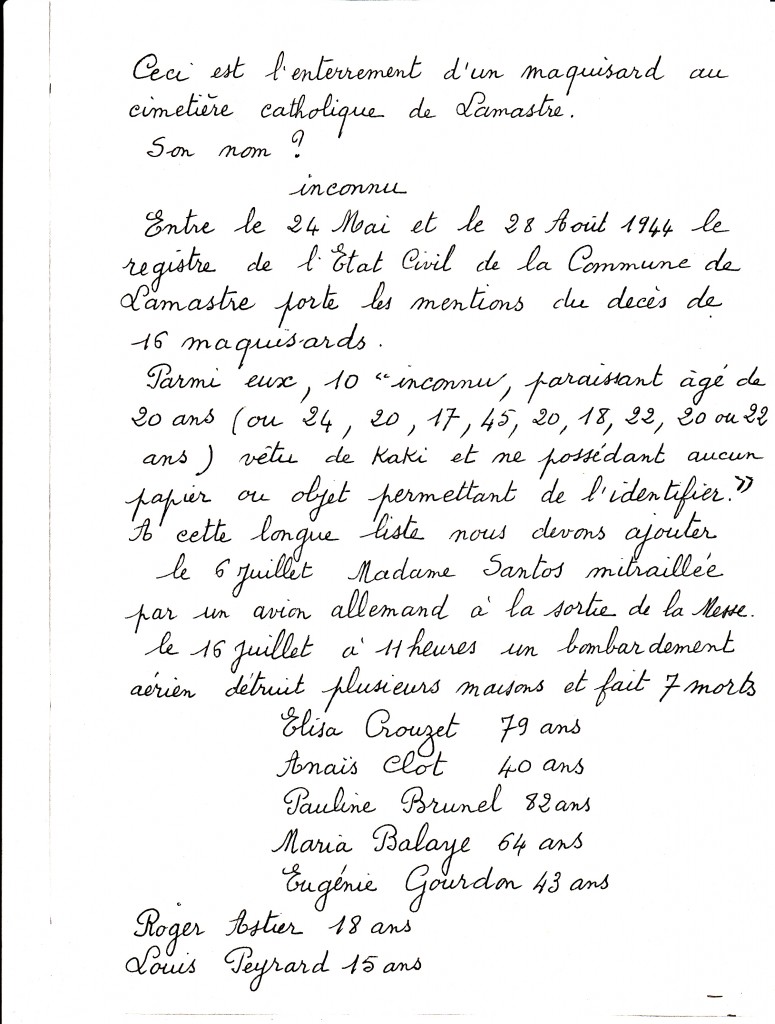 Ceci est l'enterrement d'un maquisard au
cimetière catholique de Lamastre.
Son nom ?
inconnu
Entre le 24 Mai et le 28 Août 1944 le
registre de l'Etat Civil de la Commune de
Lamastre porte les mentions du decès de
16 maquisards.
Parmi eux, 10 "inconnu, paraissant àgé de
20 ans (ou 24, 20, 17, 45, 20, 18, 22, 20 ou 22
ans) vêtu de Kaki et ne possédant aucun
papier ou objet permettant de l'identifier."
A cette longue liste nous devons ajouter
le 6 Juillet Madame Santos mitraillée
par un avion allemand à la sortie de la Messe.
le 16 Juillet à 11 heures un bombardement
aérien détruit plusieurs maisons et fait 7 morts
Elisa Crouzet 79 ans
Anaïs Clot 40 ans
Pauline Brunel 82 ans
Maria Balaye 64 ans
Eugénie Gourdon 43 ans
Roger Astier 18 ans
Louis Peyrard 15 ans